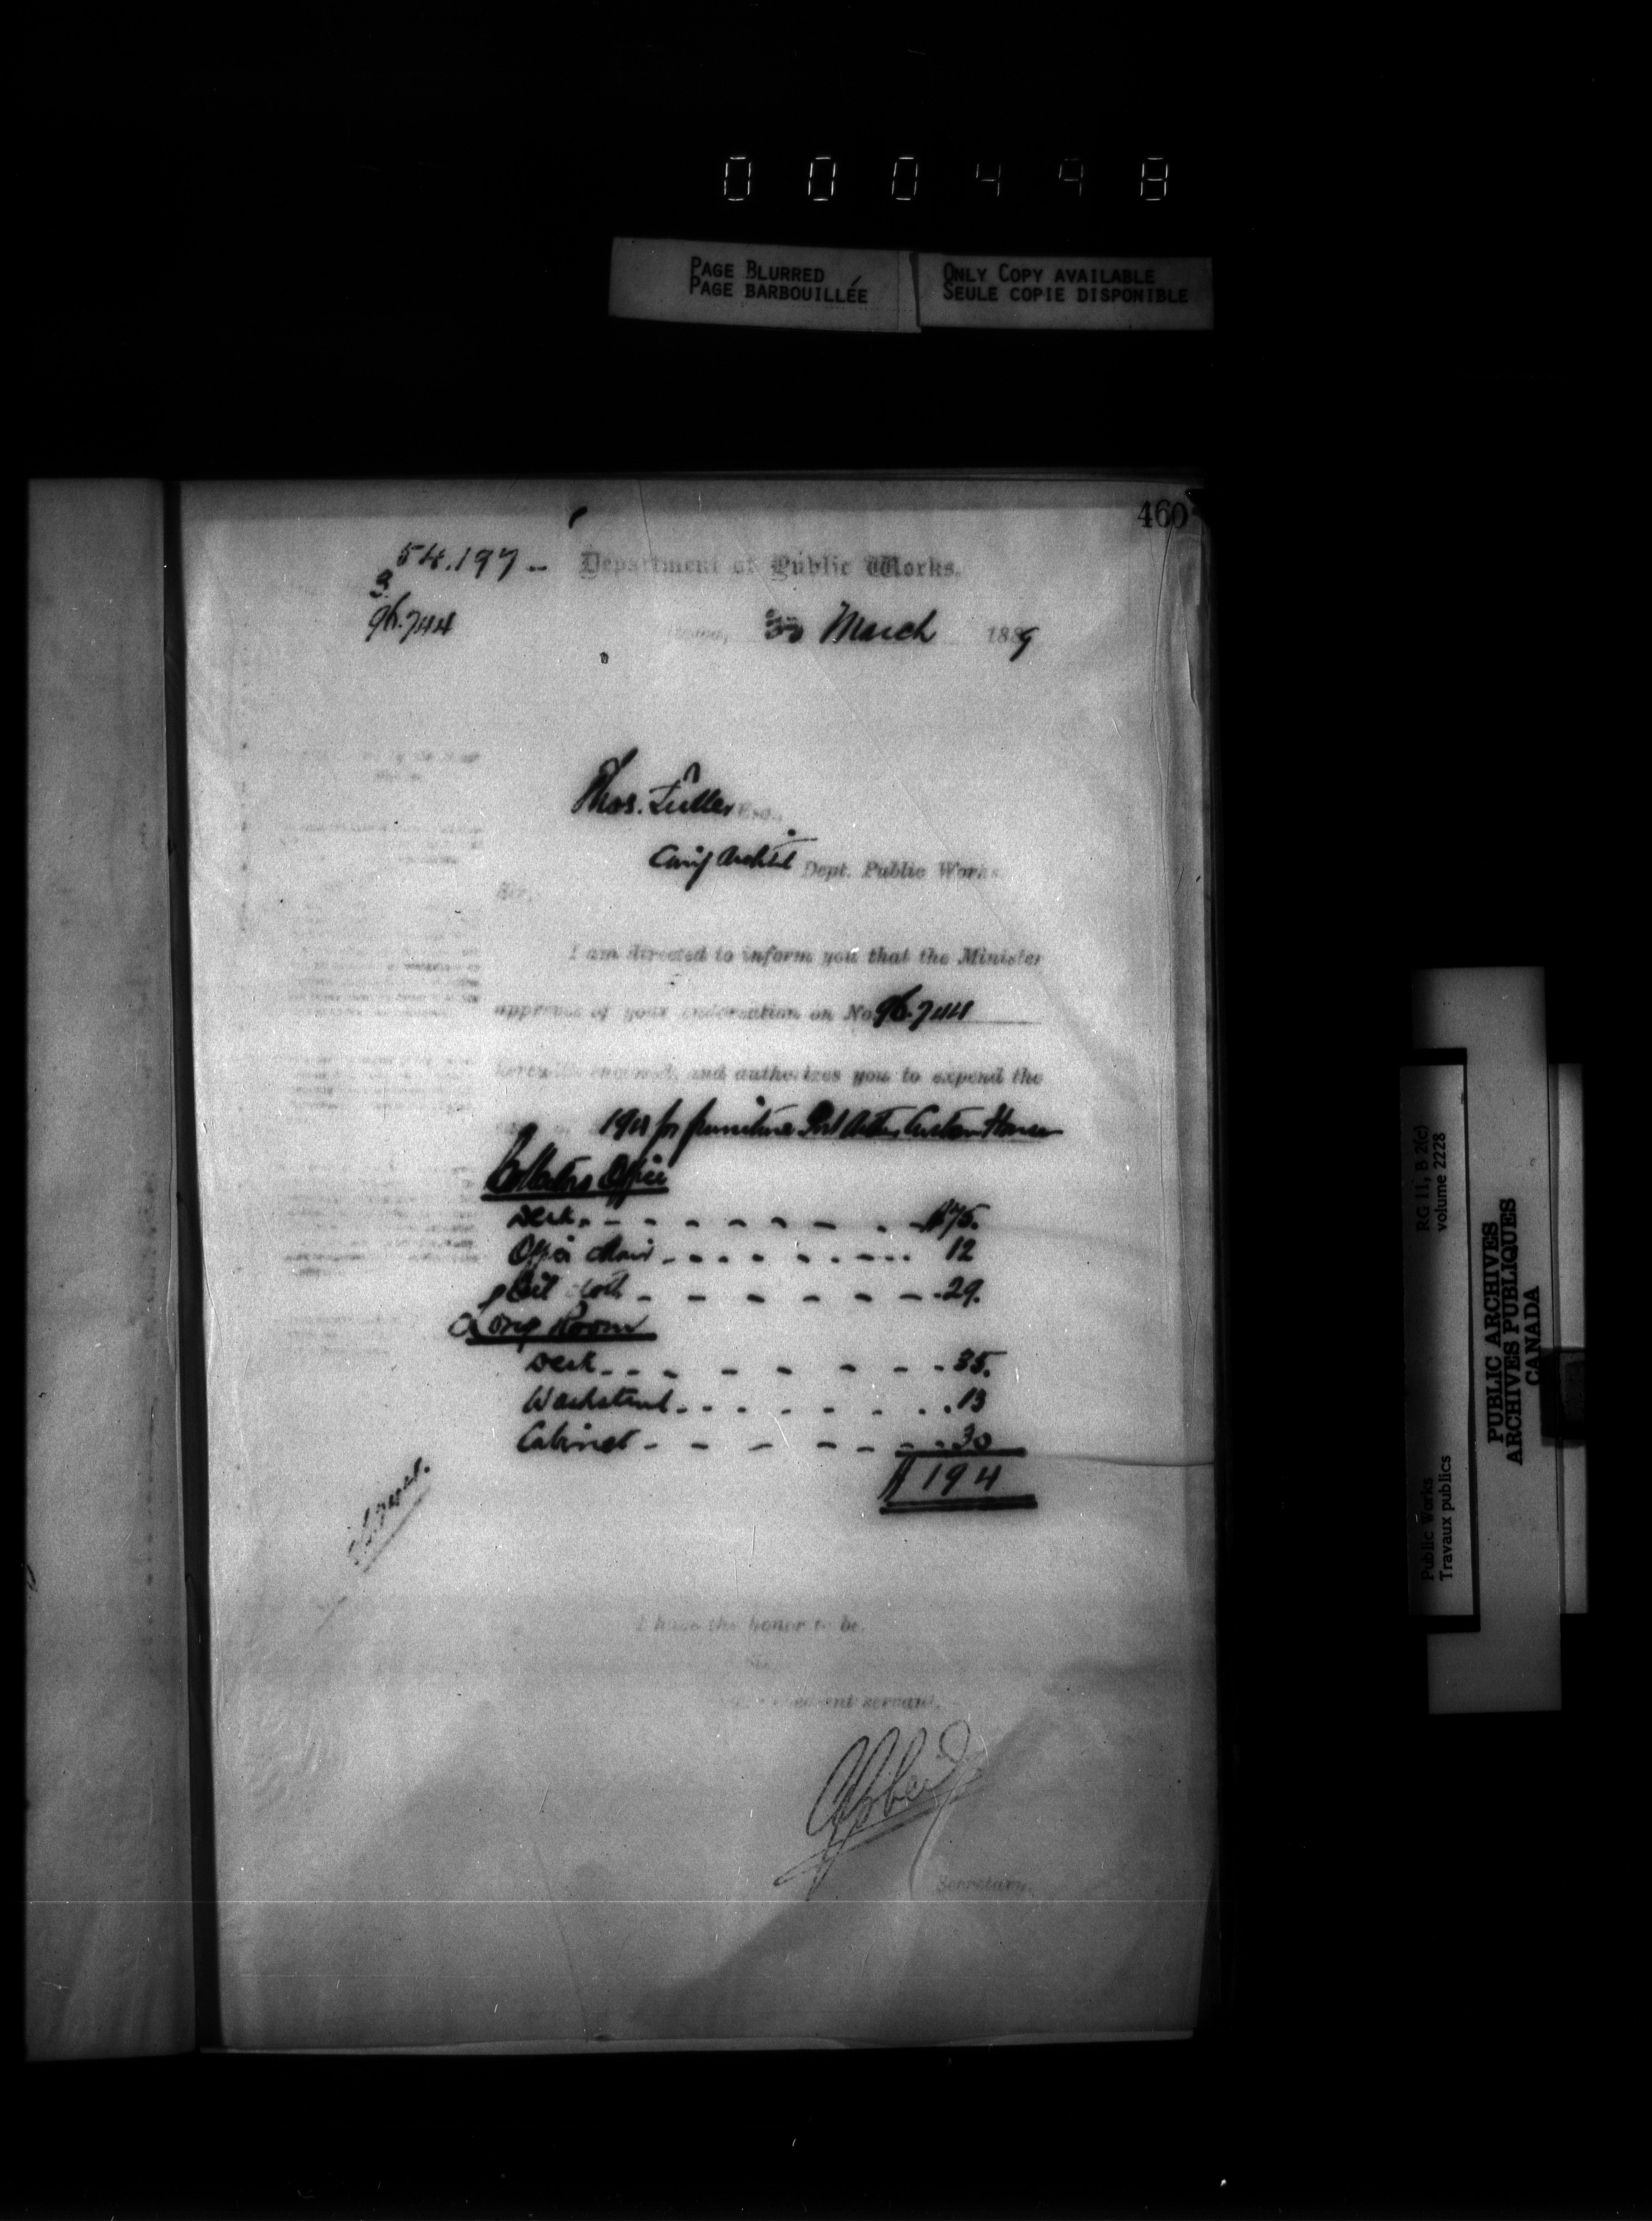 000498
PAGE BLURRED
PAGE BARBOUILLÉE
ONLY COPY AVAILABLE
SEULE COPIE DISPONIBLE
460
54.197
3.
96.744
Department of Public Works.
30 March 1889
Thos. Fuller Esq.,
Chief Archtct Dept. Public Works
Sir,
I am directed to inform you that the Minister
approves of your on No 96.744
herewith enclosed, and authorizes you to expend the
194 for furniture Port Arthur Custom House
Collectors Office
Desk $75.
Office Chair 12
Oil Cloth 29.
Long Room
Desk 35.
Washstand 13
Cabinet 30
$194
I have the honor to be,
obedient servant,
Secretary.
Public Works
Travaux publics
RG 11, B 2(c)
volume 2228
PUBLIC ARCHIVES
ARCHIVES PUBLIQUES
CANADA